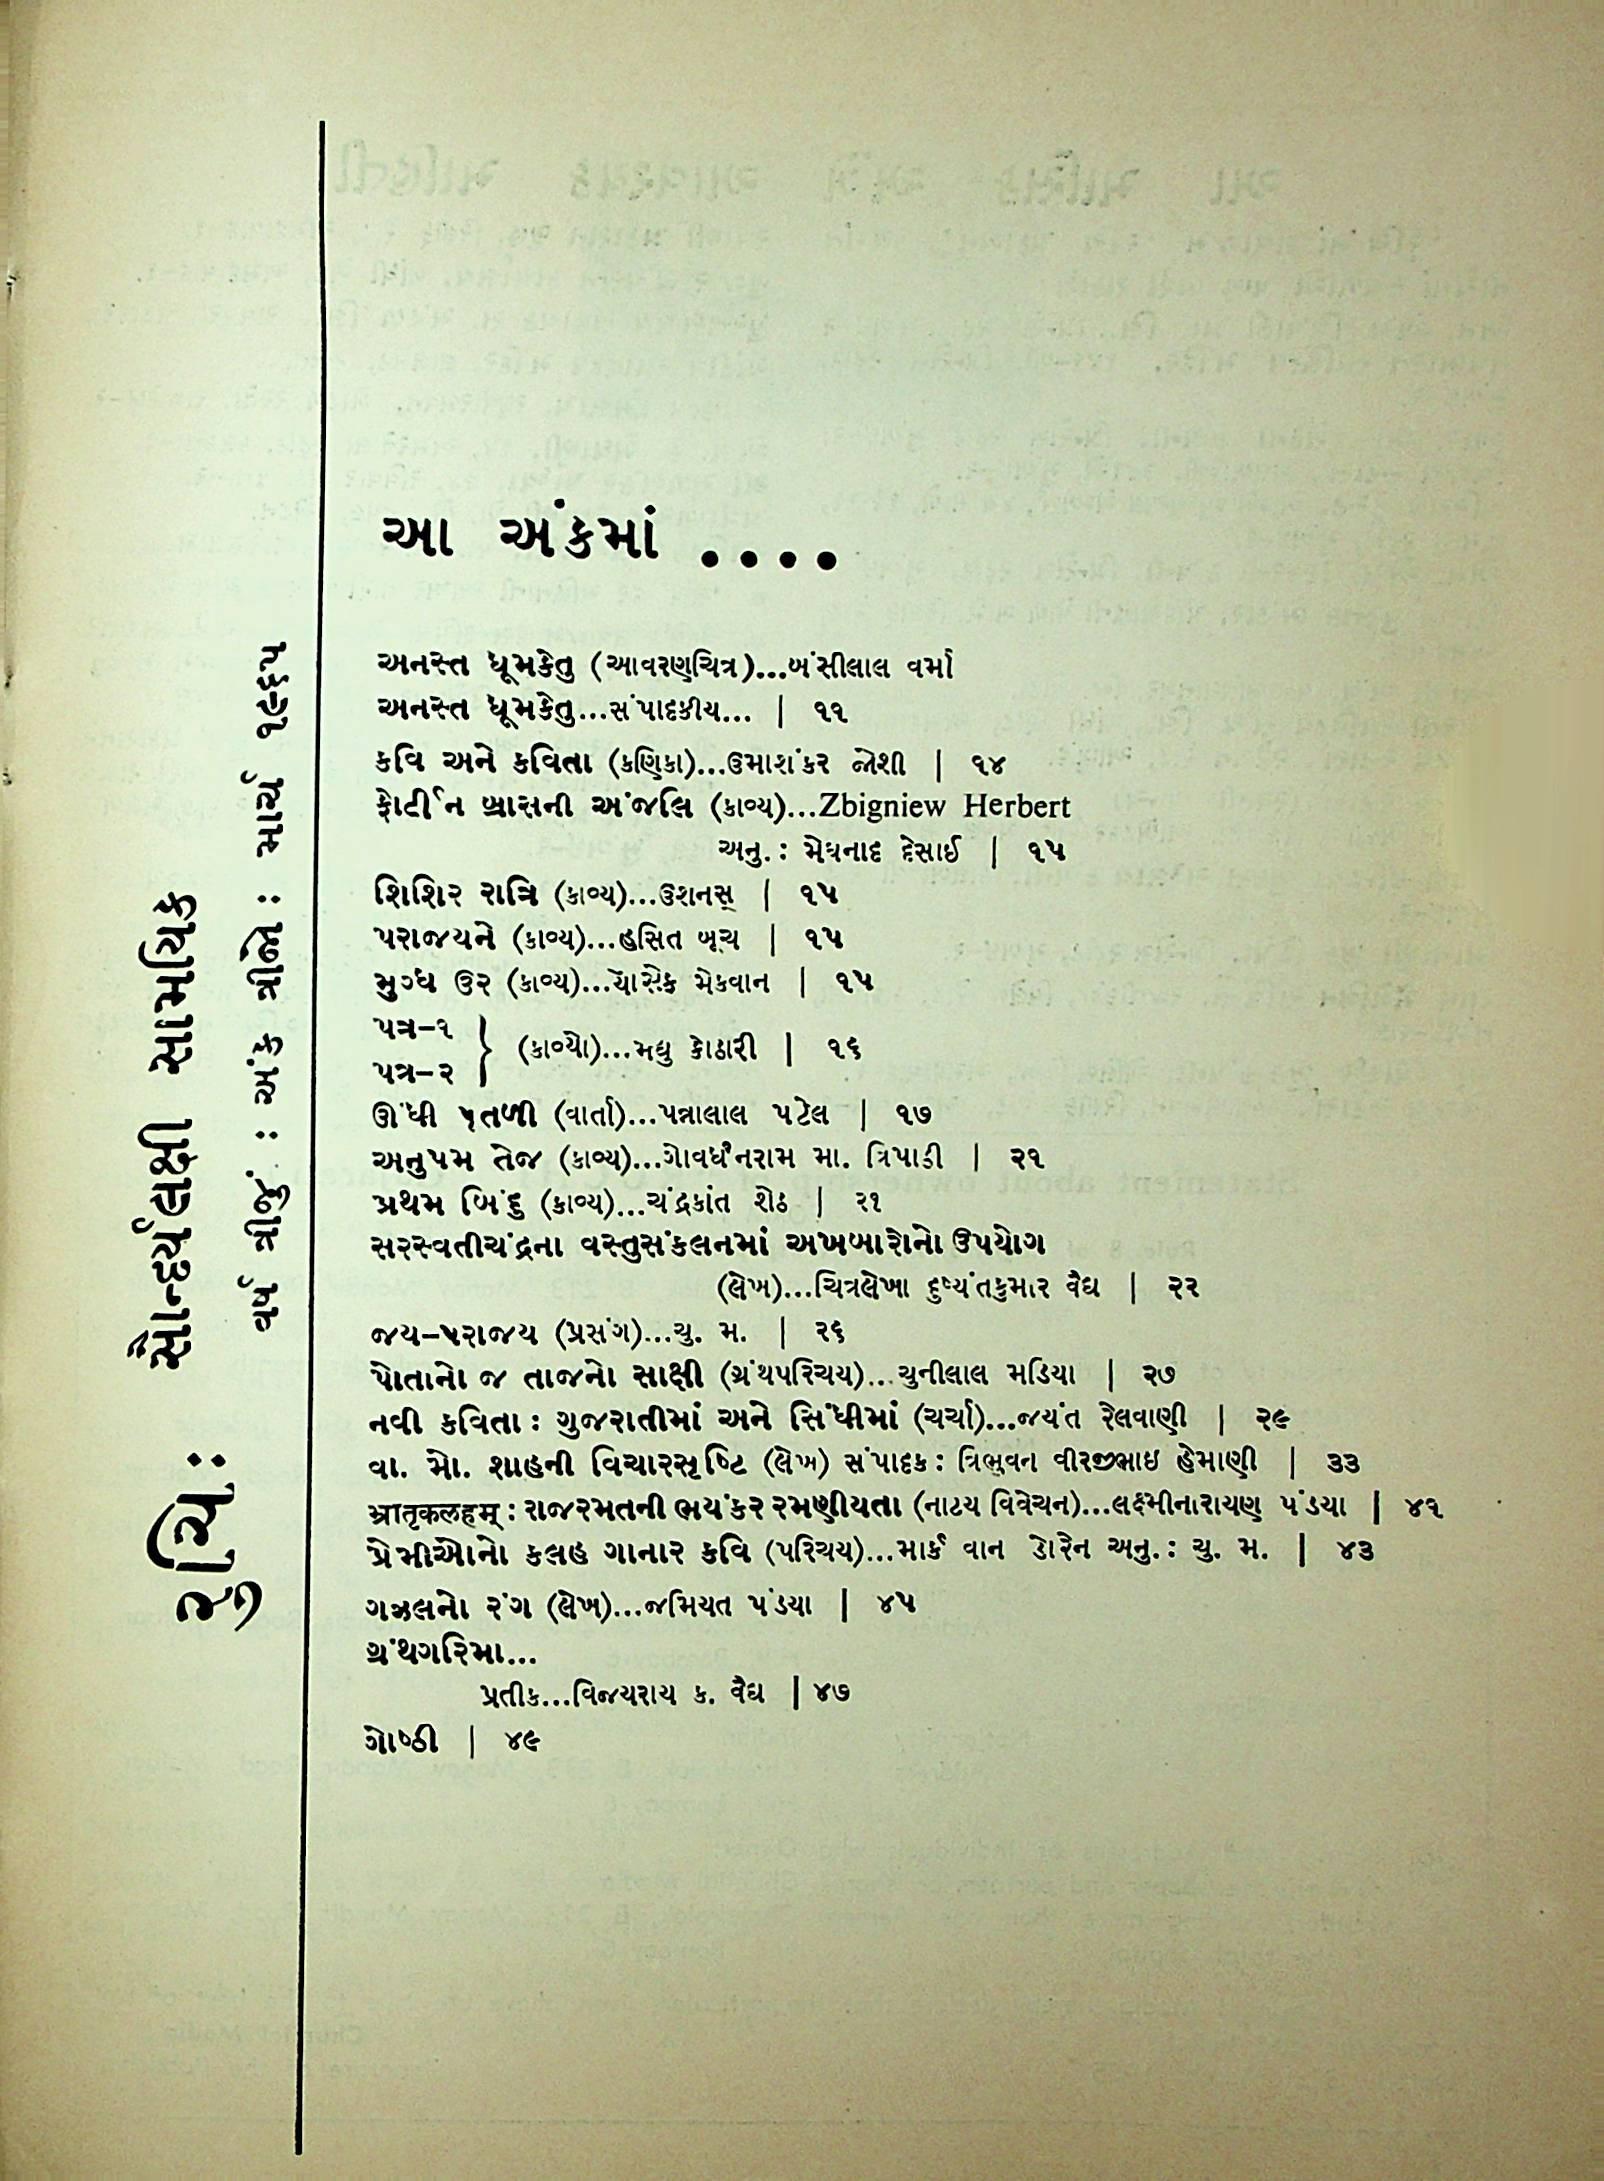 રુચિ:
સૌન્દર્યલક્ષી સામયિક
વર્ષ ત્રીજું : અંક ત્રીજો : માર્ચ ૧૯૬૫
આ અંકમાં ....
અનસ્ત ધૂમકેતુ (આવરણચિત્ર)...બંસીલાલ વર્મા
અનસ્ત ધૂમકેતુ...સંપાદકીય... | ૧૧
કવિ અને કવિતા (કણિકા)...ઉમાશંકર જોશી | ૧૪
ફોર્ટીન બ્રાસની અંજલિ (કાવ્ય)...Zbigniew Herbert
અનુ. : મેઘનાદ દેસાઈ | ૧૫
શિશિર રાત્રિ (કાવ્ય)...ઉશનસ્ | ૧૫
પરાજયને (કાવ્ય)...હસિત બૂચ | ૧૫
મુગ્ધ ઉર (કાવ્ય)...યૉસેફ મેકવાન | ૧૫
પત્ર-૧
પત્ર-૨ } (કાવ્યો)...મધુ કોઠારી | ૧૬
ઊંધી પૂતળી (વાર્તા)...પન્નાલાલ પટેલ | ૧૭
અનુપમ તેજ (કાવ્ય)...ગોવર્ધનરામ મા. ત્રિપાઠી | ૨૧
પ્રથમ બિંદુ (કાવ્ય)...ચંદ્રકાંત શેઠ | ૨૧
સરસ્વતીચંદ્રના વસ્તુસંકલનમાં અખબારોનો ઉપયોગ
(લેખ)...ચિત્રલેખા દુષ્યંતકુમાર વૈદ્ય | ૨૨
જય-પરાજય (પ્રસંગ)...ચુ. મ. | ૨૬
પોતાનો જ તાજનો સાક્ષી (ગ્રંથપરિચય)...ચુનીલાલ મડિયા | ૨૭
નવી કવિતા : ગુજરાતીમાં અને સિંધીમાં (ચર્ચા)...જયંત રેલવાણી | ૨૯
વા. મો. શાહની વિચારસૃષ્ટિ (લેખ) સંપાદક : ત્રિભુવન વીરજીભાઇ હેમાણી | ૩૩
भ्रातृकलहम् : રાજરમતની ભયંકર રમણીયતા (નાટ્ય વિવેચન)...લક્ષ્મીનારાયણ પંડયા | ૪૧
પ્રેમીઓનો કલહ ગાનાર કવિ (પરિચય)...માર્ક વાન ડોરેન અનુ. : ચુ. મ. | ૪૩
ગઝલનો રંગ (લેખ)...જમિયત પંડયા | ૪૫
ગ્રંથગરિમા...
પ્રતીક...વિજયરાય ક. વૈદ્ય | ૪૭
ગોષ્ઠી | ૪૯